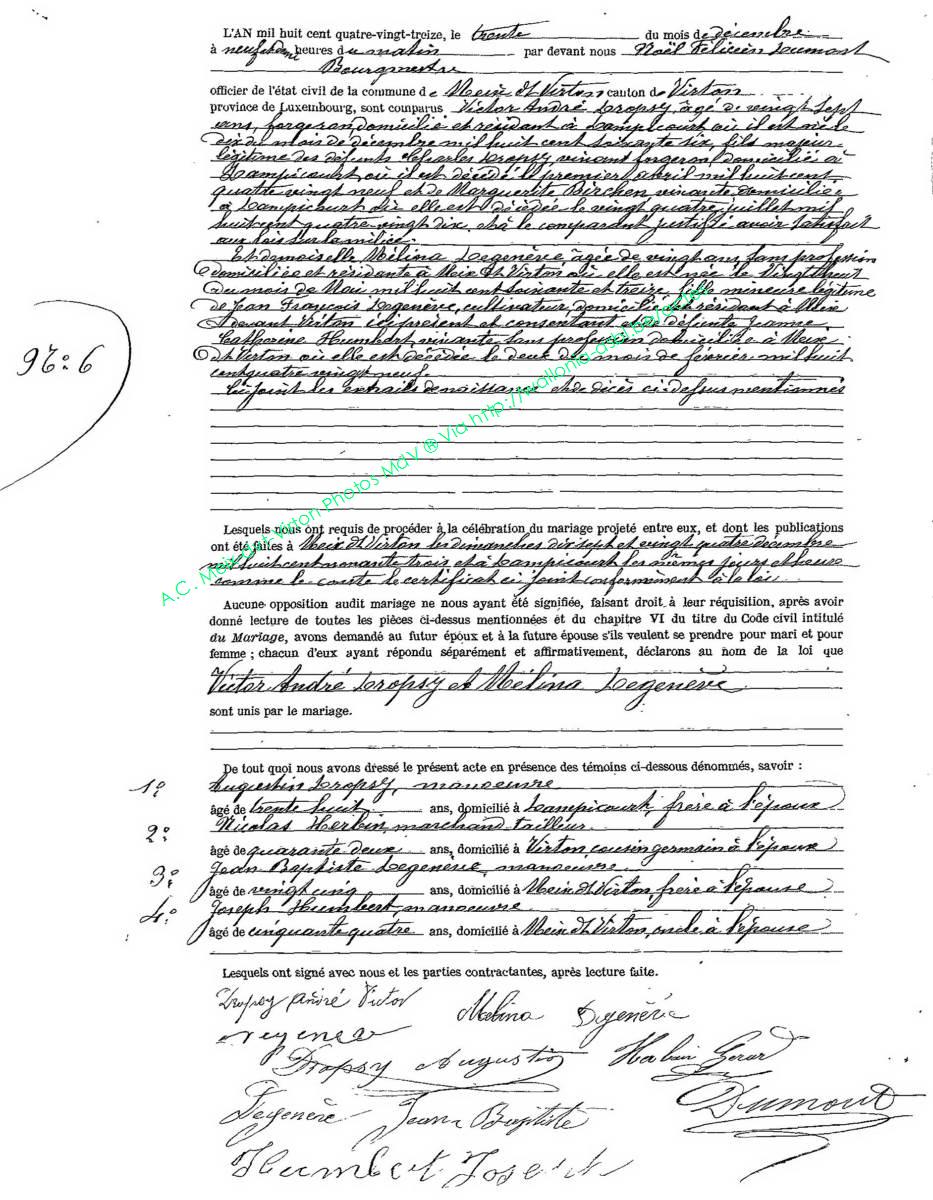 L'AN mil huit cent quatre-vingt-treize, le trente du mois de décembre
à neuf heures du matin par devant nous Noël Félicien Dumont
Bourgmestre
officier de l'état civil de la commune de Meix dt Virton canton de Virton
province de Luxembourg, sont comparus Victor André Dropsy, âgé de vingt sept
ans, forgeron domicilié et résidant à Lampicourt où il est né le
dix du mois de décembre mil huit cent soixante six, fils majeur
légitime des défunts Charles Dropsy vivant forgeron domicilié à
Lampicourt où il est décédé le premier avril mil huit cent
quatre vingt neuf et de Marguerite Birchen vivante domiciliée
à Lampicourt où elle est décédée le vingt quatre juillet mil
huit cent quatre vingt dix, et à le comparant justifié avoir satisfait
aux lois sur la milice.
Et demoiselle Mélina Degenève, âgée de vingt ans, sans profession
domiciliée et résidante à Meix dt Virton où elle est née le vingt huit
du mois de Mai mil huit cent soixante et treize, fille mineure légitime
de Jean François Degenève, cultivateur, domicilié et résidant à Meix
devant Virton ici présent et consentant et de défunte Jeanne
Catherine Humbert vivante sans profession domiciliée à Meix
dt Virton où elle est décédée le deux du mois de février mil huit
cent quatre vingt neuf.
Ci-joint les extraits de naissance et de décès ci-dessus mentionnés
96:6
A.C. Meix-dvt-Virton Photos MdV ® Via http://wallonia-asbl.be/actes
Lesquels nous ont requis de procéder à la célébration du mariage projeté entre eux, et dont les publications
ont été faites à Meix dt Virton les dimanches dix sept et vingt quatre décembre
mil huit cent nonante trois et à Lampicourt les mêmes jours et heure
comme le conste le certificat ci joint conformément à la loi.
Aucune opposition audit mariage ne nous ayant été signifiée, faisant droit à leur réquisition, après avoir
donné lecture de toutes les pièces ci-dessus mentionnées et du chapitre VI du titre du Code civil intitulé
du Mariage, avons demandé au futur époux et à la future épouse s'ils veulent se prendre pour mari et pour
femme ; chacun d'eux ayant répondu séparément et affirmativement, déclarons au nom de la loi que
Victor André Dropsy et Mélina Degenève
sont unis par le mariage.
De tout quoi nous avons dressé le présent acte en présence des témoins ci-dessous dénommés, savoir :
1º Augustin Dropsy, manoeuvre
âgé de trente huit ans, domicilié à Lampicourt, frère à l'époux
2º Nicolas Herbin marchand tailleur
âgé de quarante deux ans, domicilié à Virton cousin germain à l'époux
3º Jean Baptiste Degenève, manoeuvre
âgé de vingt cinq ans, domicilié à Meix dt Virton, frère à l'épouse
4º Joseph Humbert, manoeuvre
âgé de cinquante quatre ans, domicilié à Meix dt Virton, oncle à l'épouse
Lesquels ont signé avec nous et les parties contractantes, après lecture faite.
Dropsy André Victor
Mélina Degenève
Degeneve
Dropsy Augustin
Dumont
Degenère Jean Baptiste
Humbert Joseph